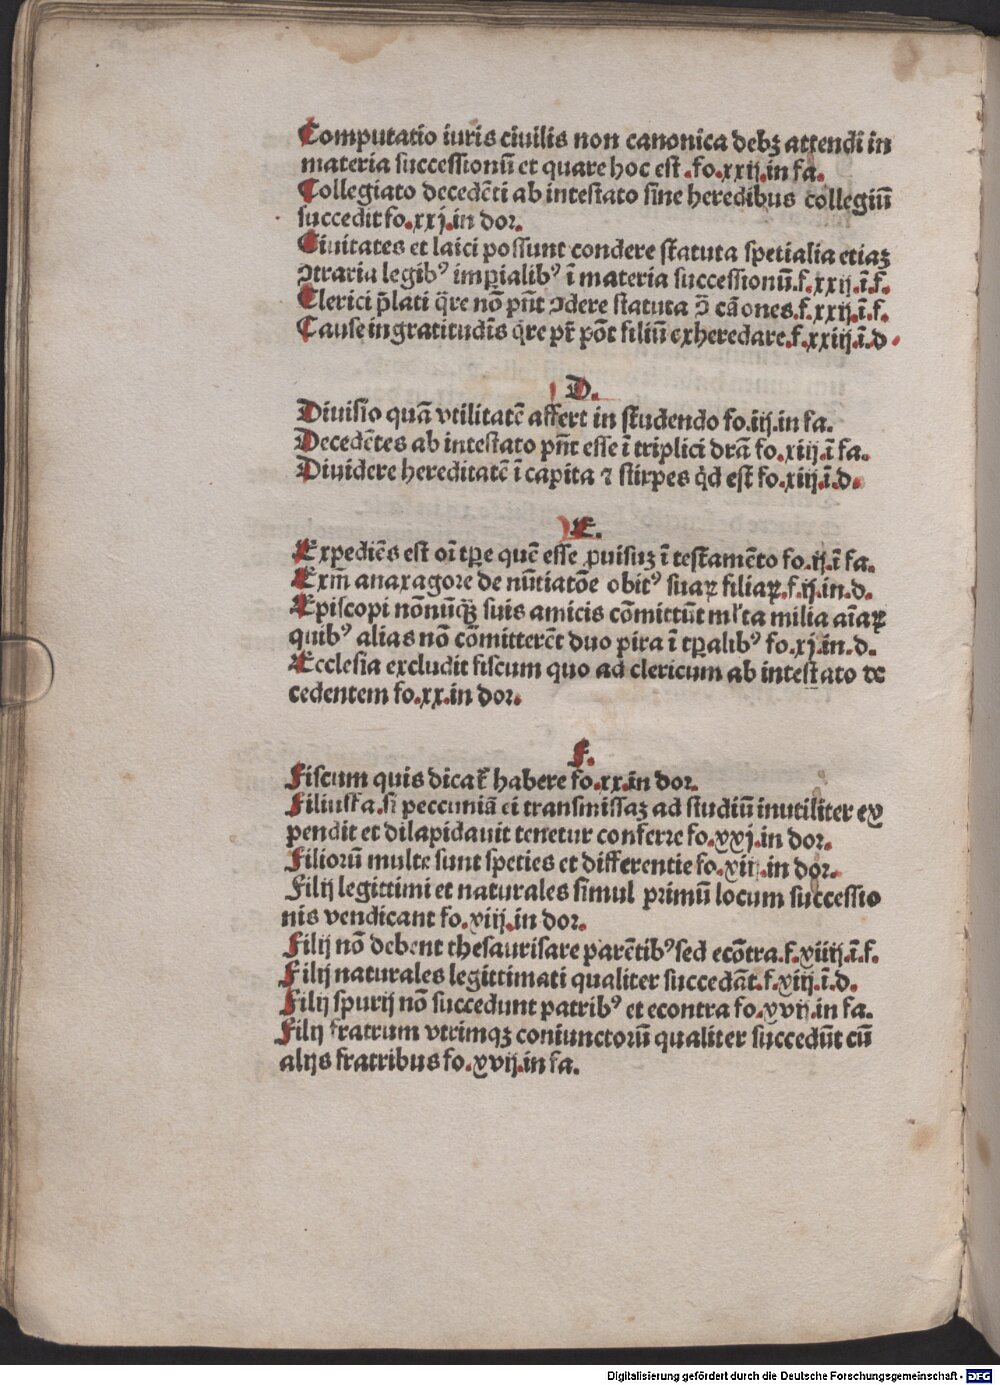 Computatio iuris ciuilis non canonica debꝫ attendi in
materia successionū et quare hoc est .fo.xxij.in fa.
Collegiato decedēti ab intestato sine heredibus collegiū
succedit fo.xxj.in dor.
Ciuitates et laici possunt condere statuta spetialia etiaꝫ
ↄtraria legibꝰ imꝑialibꝰ ī materia successionū.f.xxij.ī.f.
Clerici p̄lati q̄re nō pn̄t ↄdere statuta ↄ̄ cāones.f.xxij.ī.f.
Cause ingratitudīs q̄re pr̄ pōt filiū exheredare.f.xxiij.ī.d.
D.
Diuisio quā vtilitatē affert in studendo fo.iij.in fa.
Decedētes ab intestato pn̄t esse ī triplici drā fo.xiij.ī fa.
Diuidere hereditatē ī capita ⁊ stirpes qd̄ est fo.xiij.ī.d.
E.
Expediēs est oī tꝑe quē esse ꝓuisuꝫ ī testamēto fo.ij.ī fa.
Exm̄ anaxagore de nūtiatōe obitꝰ suaꝝ filiaꝝ.f.ij.in.d.
Episcopi nōnūqꝫ̄ suis amicis cōmittūt ml̓ta milia aīaꝝ
quibꝰ alias nō cōmitterēt duo pira ī tꝑalibꝰ fo.xj.in.d.
Ecclesia excludit fiscum quo ad clericum ab intestato de
cedentem fo.xx.in dor.
F.
Fiscum quis dicat̉ habere fo.xx.in dor.
Filiusfa.si peccuniā ei transmissaꝫ ad studiū inutiliter ex
pendit et dilapidauit tenetur conferre fo.xxj.in dor.
Filiorū multe sunt speties et differentie fo.xii.in dor.
Filij legittimi et naturales simul primū locum successio
nis vendicant fo.xiij.in dor.
Filij nō debent thesaurisare parētibꝰ sed ecōtra.f.xiiij.ī.f.
Filij naturales legittimati qualiter succedāt.f.xiij.ī.d.
Filij spurij nō succedunt patribꝰ et econtra fo.xvij.in fa.
Filij fratrum vtrimqꝫ coniunctorū qualiter succedūt cū
alijs fratribus fo.xvij.in fa.
Digitalisierung gefördert durch die Deutsche Forschungsgemeinschaft - DFG